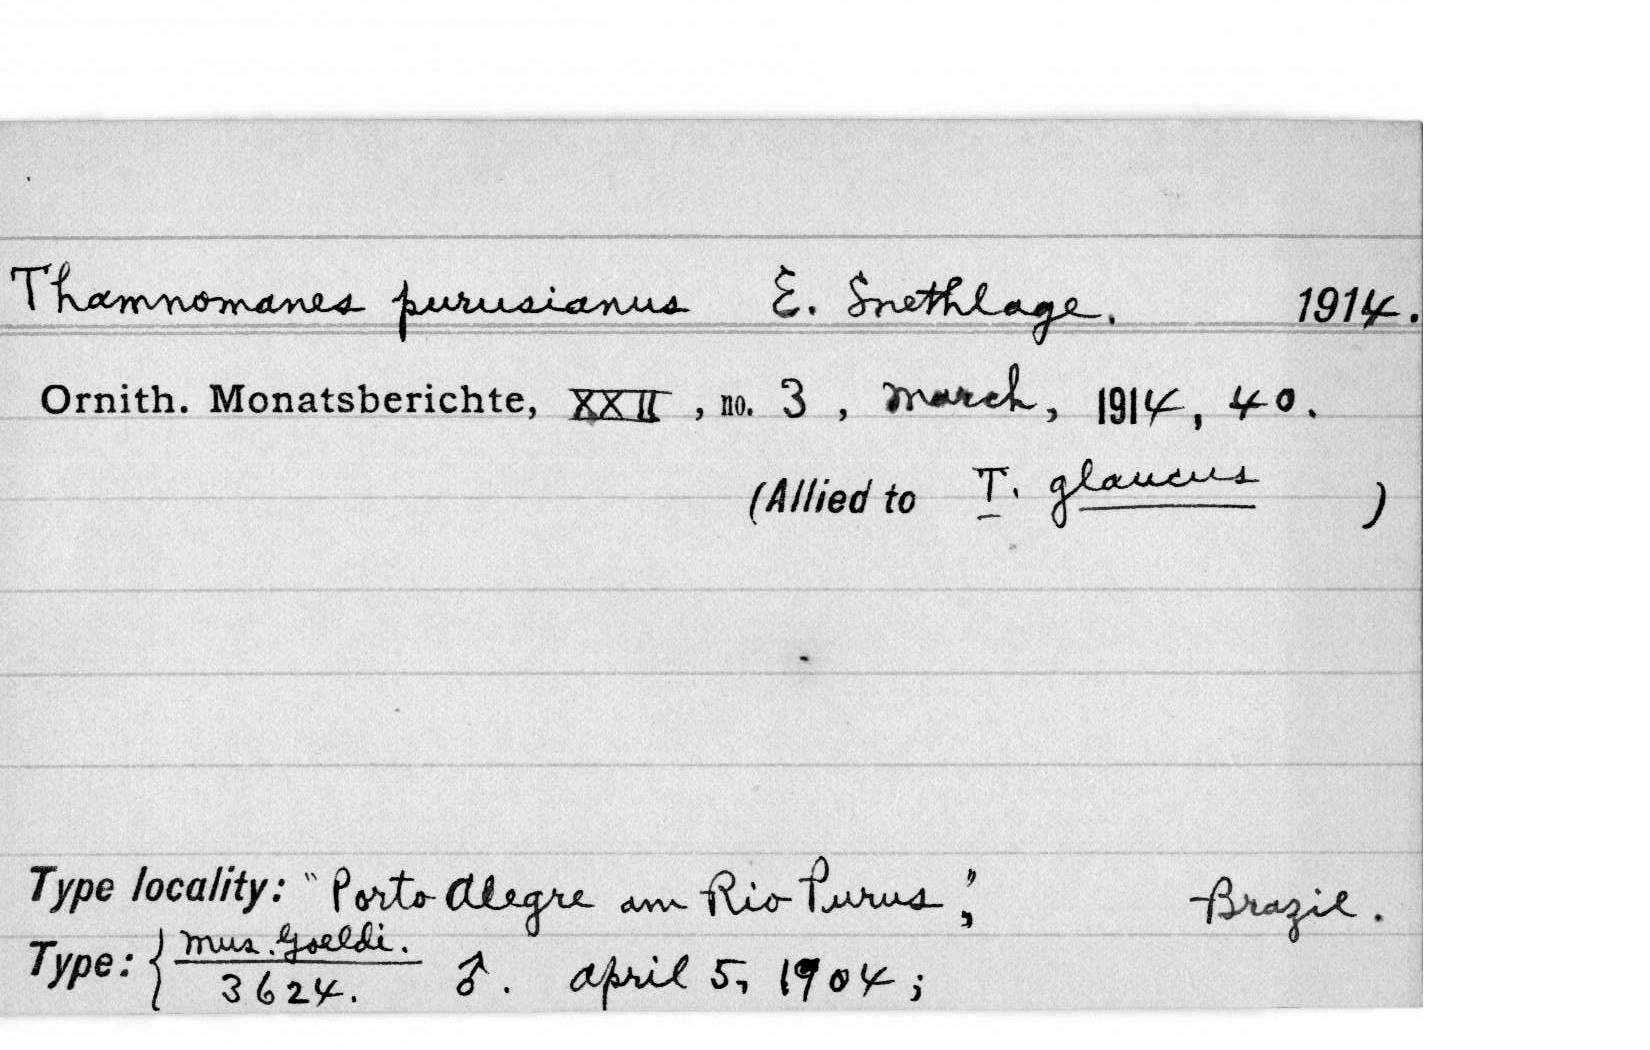 Thamnomanes purusianus E. Snethlage. 1914.
Ornith. Monatsberichte, XXII, no. 3, March, 1914, 40.
(Allied to T. glaucus )
Type locality: "Porto Alegre am Rio Purus", Brazil.
Type: { Mus. Goeldi.
3624. ♂. April 5, 1904;